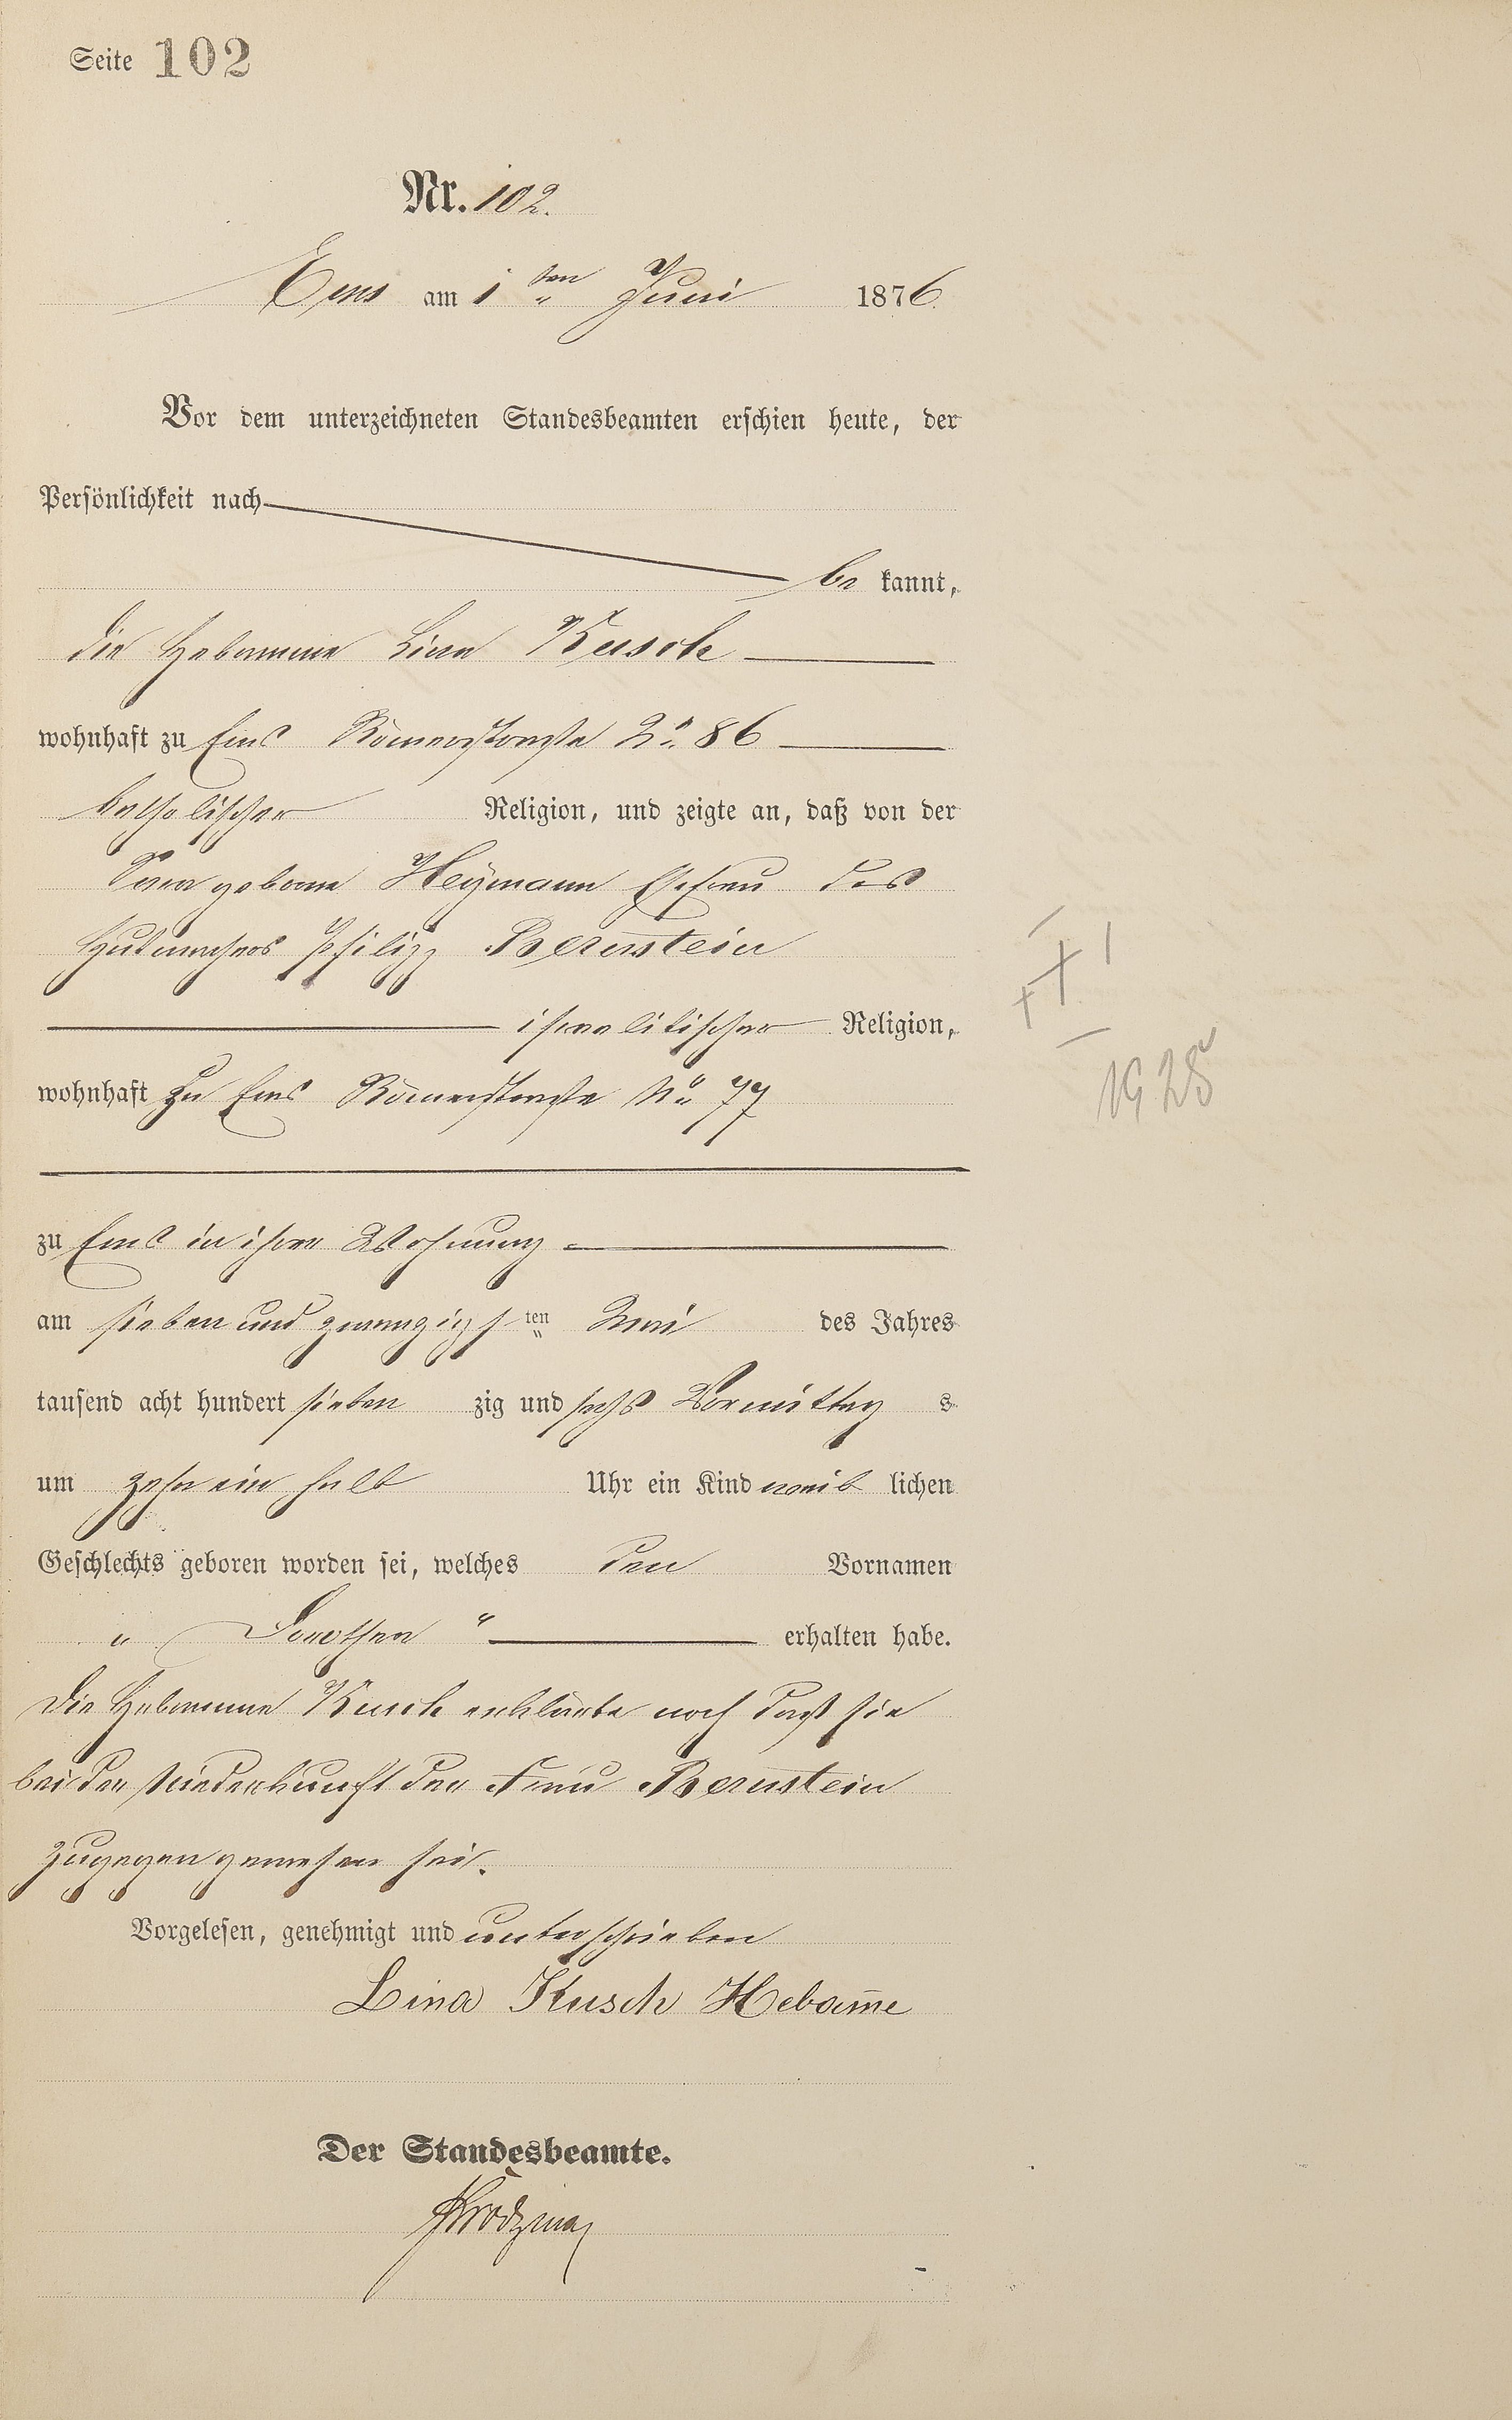 Seite 102
Nr. 102.
Ems am 1ten Juni 1876
Vor dem unterzeichneten Standesbeamten erschien heute, der
Persönlichkeit nach
be kannt,
die Hebamme Lina Kusch
wohnhaft zu Ems Römerstraße No 86
katholischer Religion, und zeigte an, daß von der
Sara geborne Heymann Ehefrau des
Hutmachers Philipp Bernstein
israelitischer Religion,
wohnhaft zu Ems Römerstraße No 77
zu Ems in ihrer Wohnung
am sieben und zwanzigsten Mai des Jahres
tausend acht hundert sieben zig und sechs Vormittag s
um zehn ein halb Uhr ein Kind weib lichen
Geschlechts geboren worden sei, welches den Vornamen
„ Dorothea “ erhalten habe.
Die Hebamme Kusch erklärte noch daß sie
bei der Niederkunft der Frau Bernstein
zugegen gewesen sei.
Vorgelesen, genehmigt und unterschrieben
Lina Kusch Hebam̄e
Der Standesbeamte.
1925